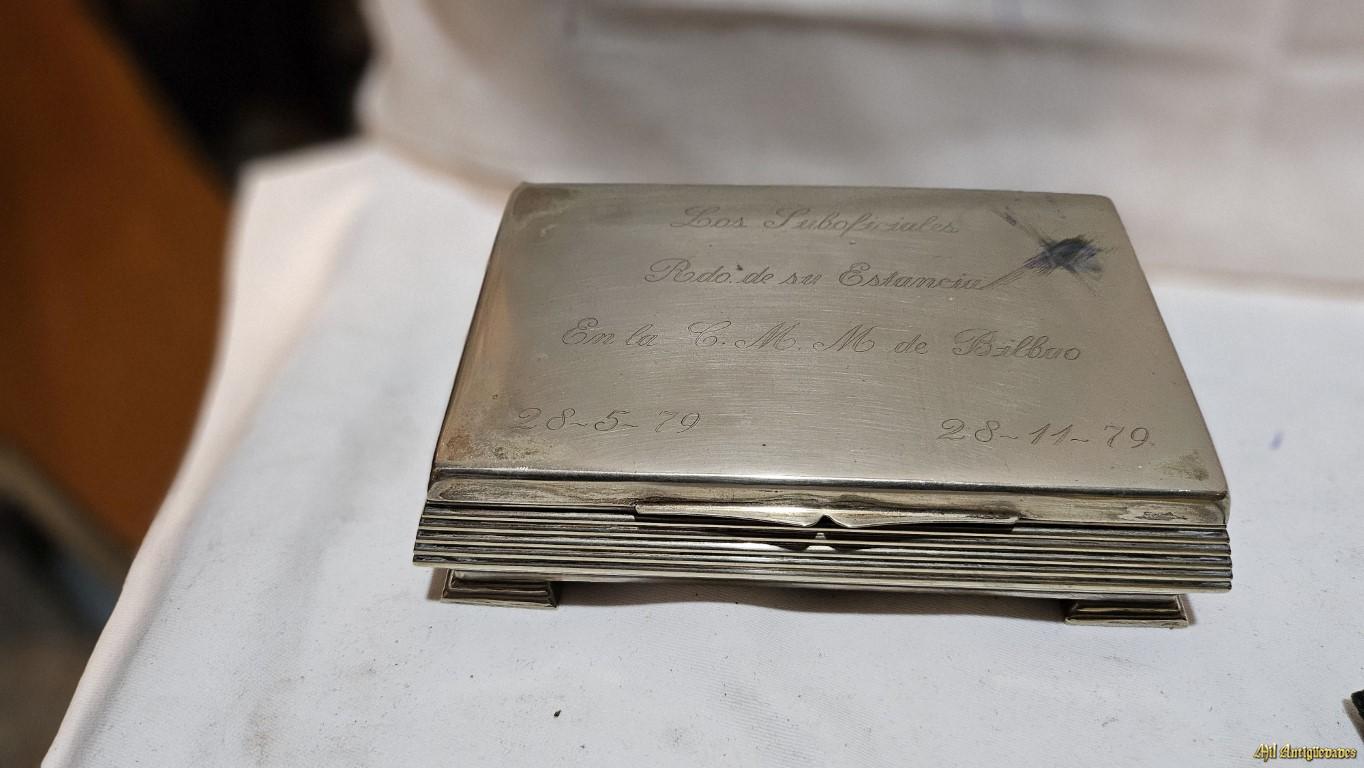 Los Suboficiales
Rdo. de su Estancia
En la C. M. M de Bilbao
28-5-79 28-11-79
Ahl Antigüedades